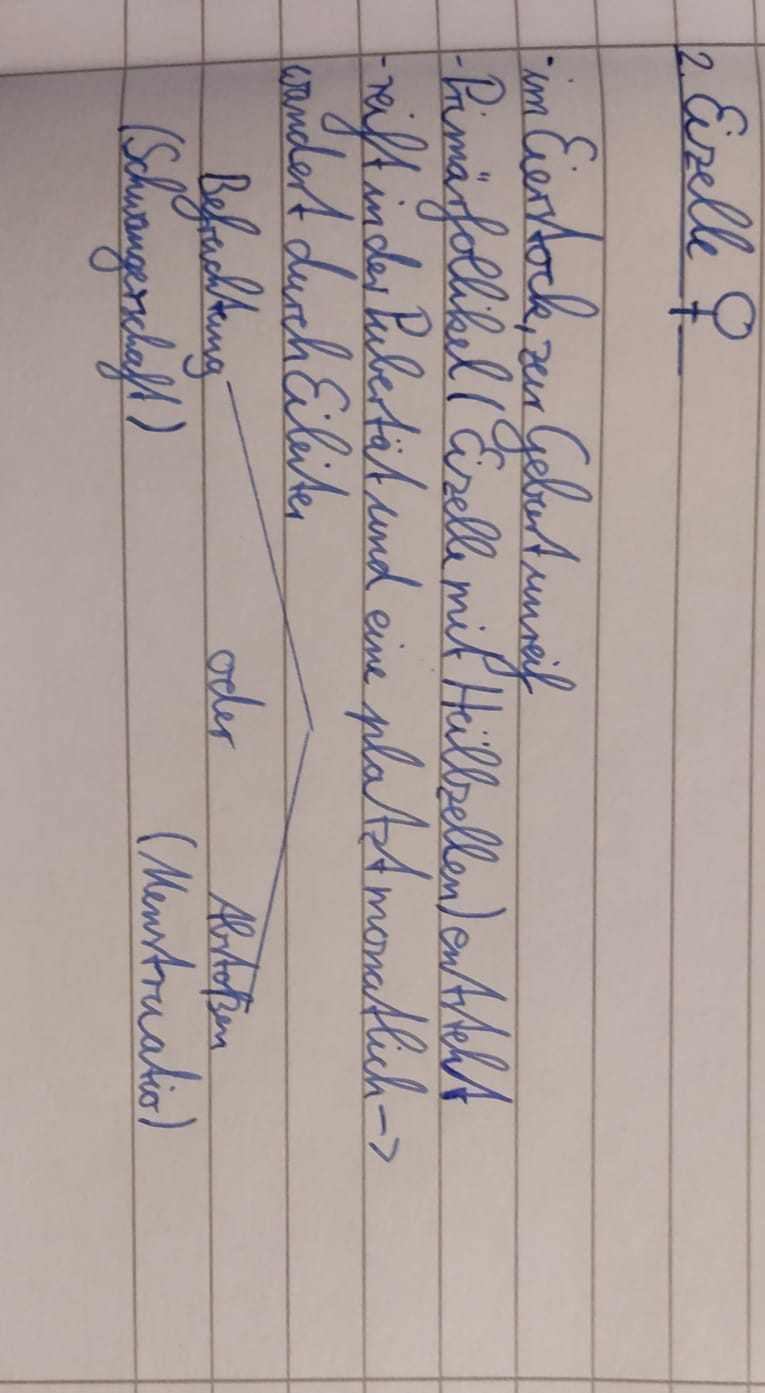 2. Eizelle ♀
· im Eierstock, zur Geburt unreif
- Primärfollikel (Eizelle mit Heilbzellen) entsteht
- reift in der Pubertät und eine platzt monatlich ->
wandert durch Eileiter
Befruchtung oder Abstoßen
(Schwangerschaft) (Menstruatio)